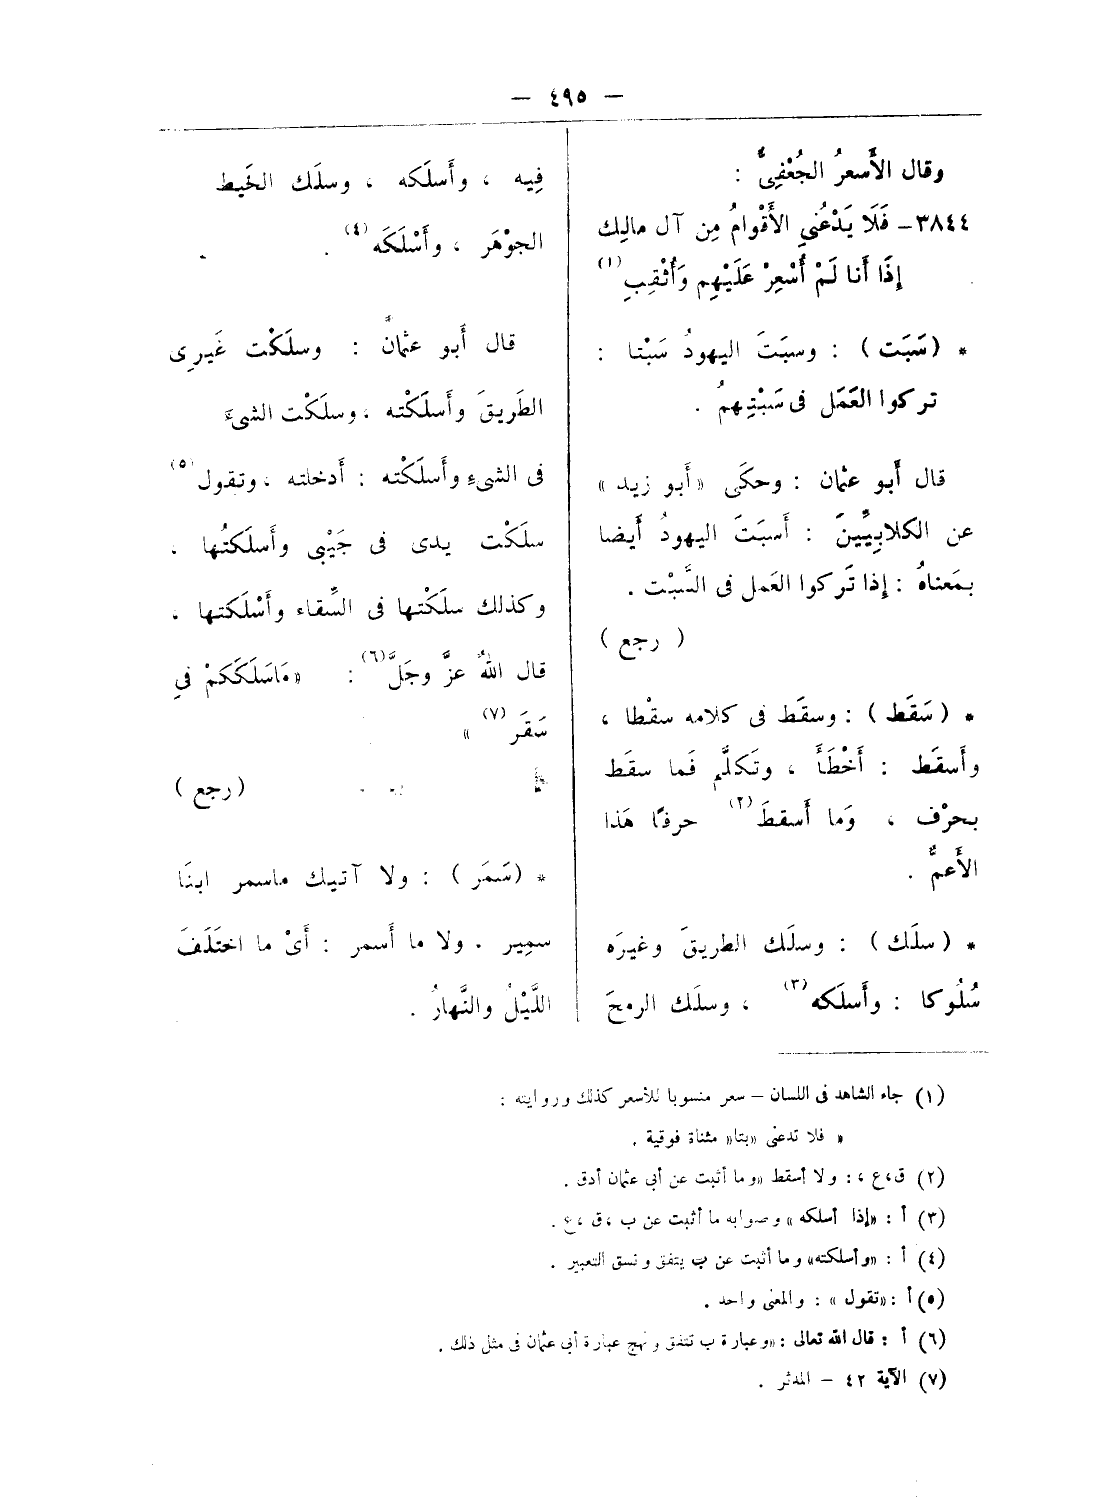 — ٤٩٥ —
وقال الأَسعرُ الجُعْفِىُّ :
٣٨٤٤ – فَلَا يَدْعُنِي الأَقْوامُ مِن آل مالِك
إِذَا أَنا لَمْ أُسْعِرْ عَلَيْهِم وَأُثْقِبِ (١)
* (سَبَت) : وسبَتَ اليهودُ سَبْتا :
تركوا العَمَل فى سَبْتِهمُ .
قال أَبو عثمان : وحكَى « أَبو زيد »
عن الكلابِيِّينَ : أَسبَتَ اليهودُ أَيضا
بمَعناهُ : إِذا تَركوا العَمل فى السَّبْت .
( رجع )
* (سَقَط) : وسقَط فى كلامه سقْطا ،
وأَسقَط : أَخْطَأَ ، وتَكلَّم فَما سقَط
بحرْف ، وَما أَسقطَ (٢) حرفًا هَذا
الأَعمُّ .
* (سلَك) : وسلَك الطريقَ وغيرَه
سُلُوكا : وأَسلَكه (٣) ، وسلَك الرمحَ
فِيه ، وأَسلَكه ، وسلَك الخَيط
الجوْهَر ، وأَسْلَكَه (٤) .
قال أَبو عثمانَ : وسلَكْت غَيرِى
الطَريقَ وأَسلَكْته ، وسلَكْت الشىءَ
فى الشىءِ وأَسلَكْته : أَدخلته ، وتقول (٥)
سلَكْت يدى فى جَيْبى وأَسلَكتُها .
وكذلك سلَكْتها فى السِّقاء وأَسْلَكتها .
قال اللهُ عزَّ وجَلَّ (٦) : « مَاسَلَكَكمْ فى
سَقَر (٧) »
( رجع )
* (سَمَر) : ولا آتيك ماسمر ابنَا
سمِير . ولا ما أَسمر : أَىْ ما اختَلَفَ
اللَّيْلُ والنَّهارُ .
(١) جاء الشاهد فى اللسان – سعر منسوبا للأسعر كذلك وروايته :
« فلا تدعنى «بتا» مثناة فوقية .
(٢) ق،ع ،: ولا أسقط «وما أثبت عن أبى عثمان أدق .
(٣) أ : «إذا أسلكه» وصوابه ما أثبت عن ب ،ق ،ع .
(٤) أ : «وأسلكته» وما أثبت عن ب يتفق ونسق التعبير .
(٥) أ : «تقول» : والمعنى واحد .
(٦) أ : قال الله تعالى : «وعبارة ب تتفق ونهج عبارة أبى عثمان فى مثل ذلك .
(٧) الآية ٤٢ – المدثر .